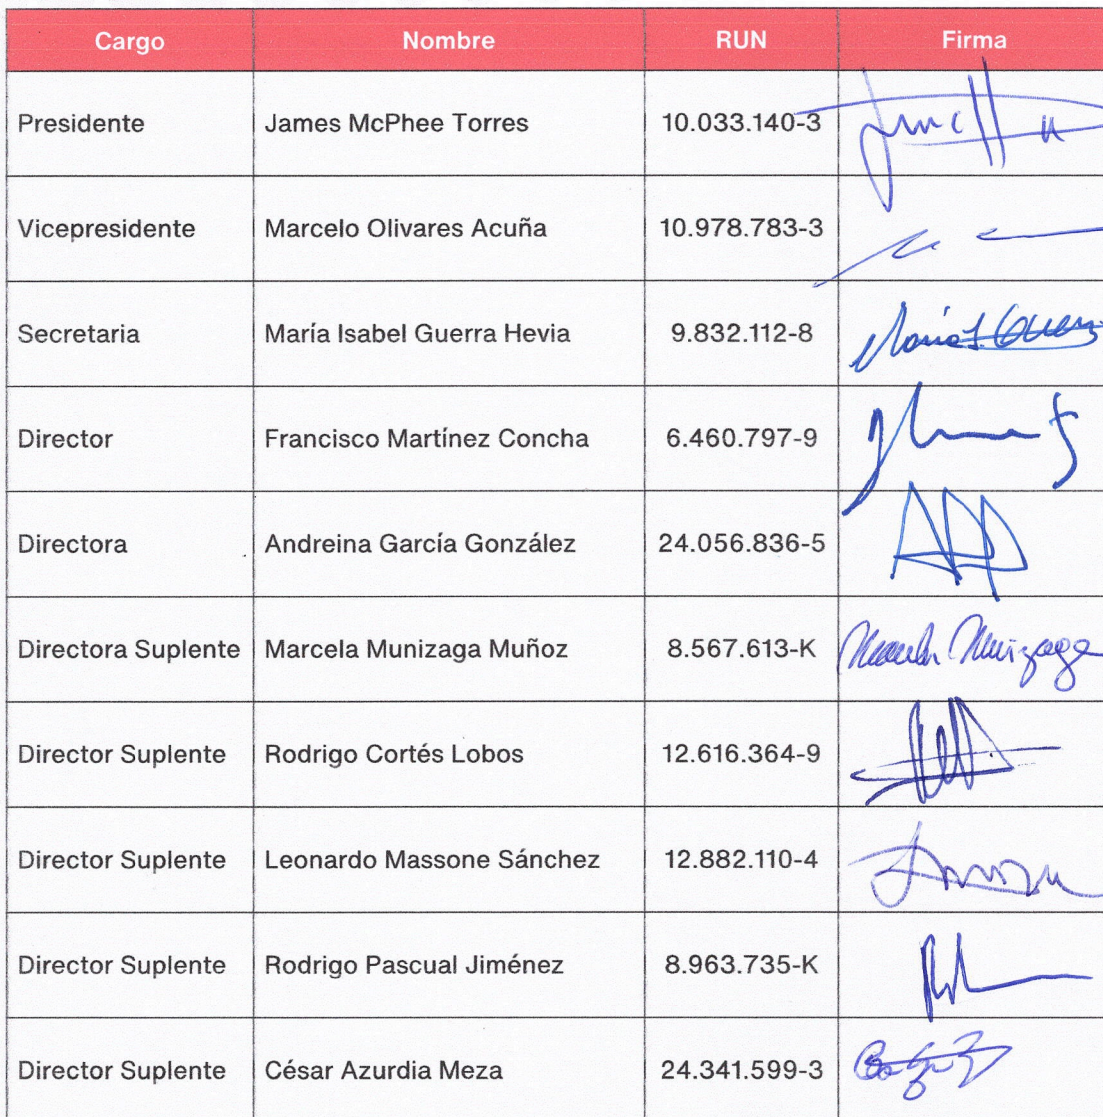 Cargo Nombre RUN Firma
Presidente James McPhee Torres 10.033.140-3
Vicepresidente Marcelo Olivares Acuña 10.978.783-3
Secretaria María Isabel Guerra Hevia 9.832.112-8
Director Francisco Martínez Concha 6.460.797-9
Directora Andreina García González 24.056.836-5
Directora Suplente Marcela Munizaga Muñoz 8.567.613-K Marcela Munizaga
Director Suplente Rodrigo Cortés Lobos 12.616.364-9
Director Suplente Leonardo Massone Sánchez 12.882.110-4
Director Suplente Rodrigo Pascual Jiménez 8.963.735-K
Director Suplente César Azurdia Meza 24.341.599-3